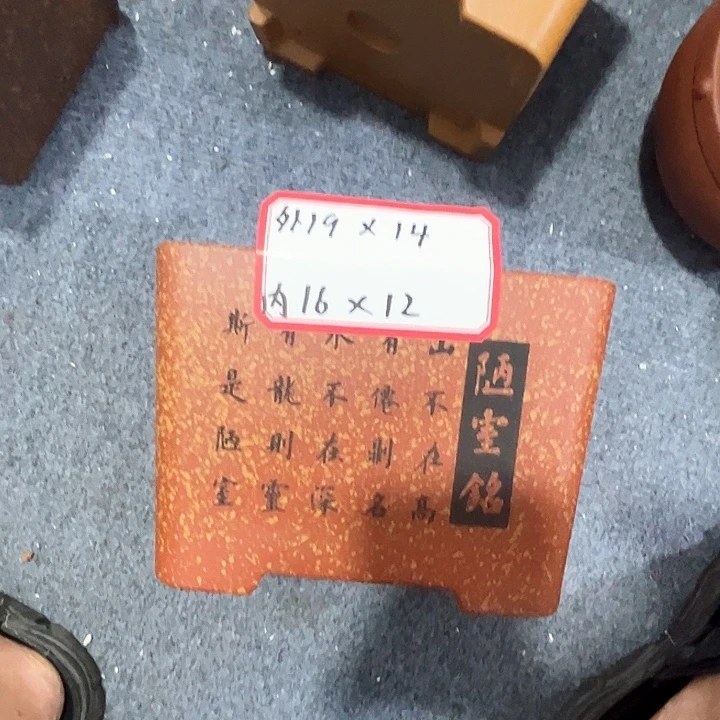 外19 × 14
内16 × 12
陋室銘
山不在高
有僊則名
水不在深
有龍則靈
斯是陋室